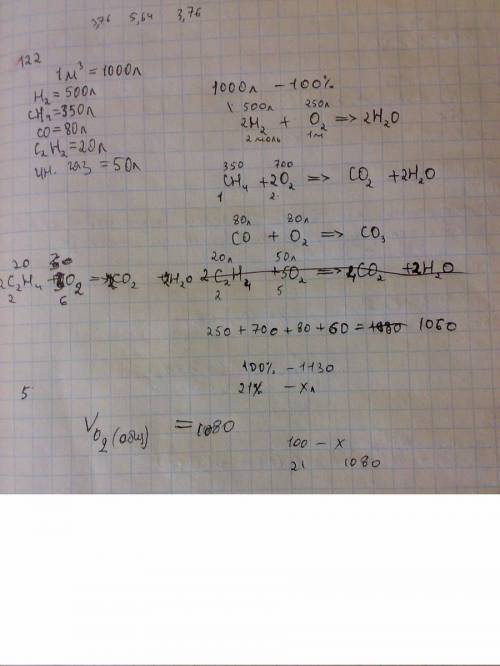 3,76 5,64 3,76
122
1 м³ = 1000л
H₂ = 500л
CH₄ = 350л
CO = 80л
C₂H₂ = 20л
ин. газ = 50л
1000л - 100%
500л 250л
2H₂ + O₂ => 2H₂O
2 моль 1м
350 700
CH₄ + 2O₂ => CO₂ + 2H₂O
1 2
80л 80л
CO + O₂ => CO₃
20
2C₂H₄ O₂ => CO₂ + 2H₂O
2 6
20л 50л
2C₂H₄ + 5O₂ => 4CO₂ + 2H₂O
2 5
250 + 700 + 80 + 60 = 1080 1060
100% - 1130
21% - xл
5
V O₂ (общ) = 1080
100 - x
21 1080